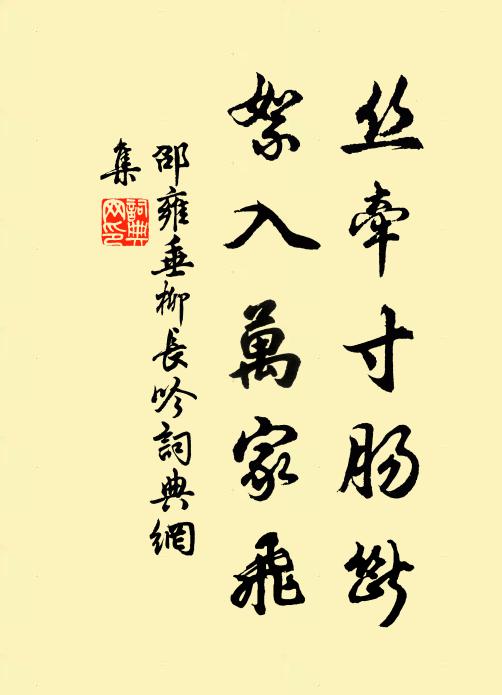 丝牵寸肠断
絮入萬家飛
邵雍垂柳長吟詞典網
集
詞典
网印